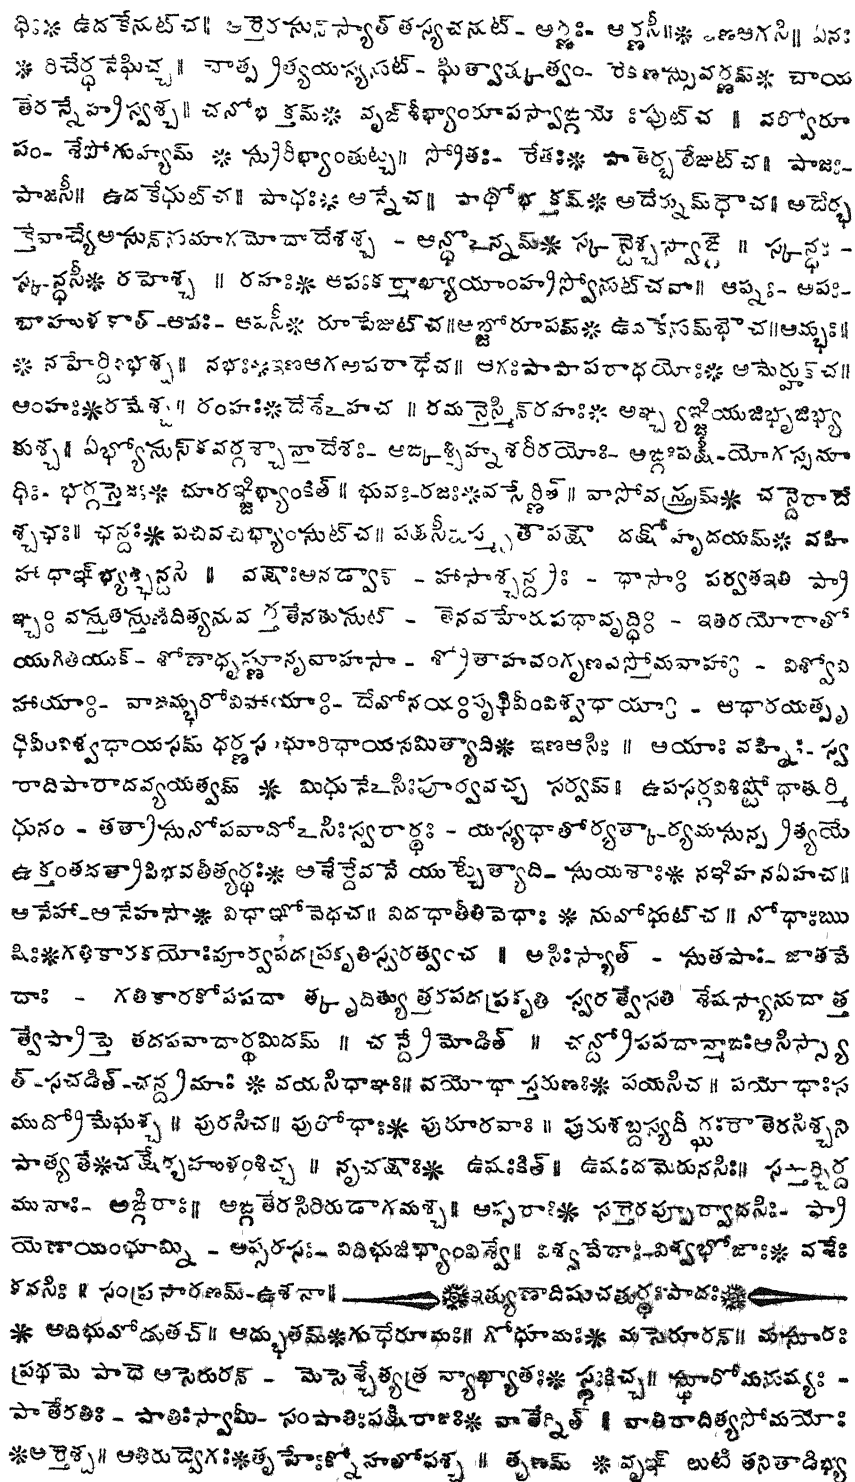 ధిః❋ ఉదకేనుట్చ॥ అర్తేరసున్ స్యాత్ తస్యచనుట్- అర్ణః- అర్ణసీ॥❋ ఇణఆగసి॥ ఏనః
❋ రిచేర్ధనేఘిచ్చ॥ చాత్ప్రత్యయస్యనుట్- ఘిత్వాత్కుత్వం- రేక్ణస్సువర్ణమ్❋ చాయ
తేరన్నేహ్రస్వశ్చ॥ చనోభక్తమ్❋ వృఙ్శీఙ్భ్యాంరూపస్వాఙ్గయోః ఃపుట్చ ॥ వర్పోరూ
పం- శేపోగుహ్యమ్ ❋ స్రురీభ్యాంతుట్చ॥ స్రోతః- రేతః❋ పాతేర్బలేజుట్చ॥ పాజః-
పాజసీ॥ ఉదకేథుట్చ॥ పాథః❋ అన్నేచ॥ పాథోభక్తమ్❋ అదేర్నుమ్ధౌచ॥ అదేర్భ
క్తేవాచ్యేఅసున్ నుమాగమోధాదేశశ్చ - అన్ధోఽన్నమ్❋ స్కన్దేశ్చస్వాఙ్గే ॥ స్కన్ధః -
స్కన్ధసీ❋ రహేశ్చ ॥ రహః❋ ఆపఃకర్మాఖ్యాయాంహ్రస్వోనుట్చవా॥ అప్నః- అపః-
బాహుళకాత్-ఆపః- ఆపసీ❋ రూపేజుట్చ॥అబ్జోరూపమ్❋ ఉదకేనుమ్భౌచ॥అమ్భః॥
❋ నహేర్దివిభశ్చ॥ నభః❋ఇణఆగఅపరాధేచ॥ ఆగఃపాపాపరాధయోః❋ అమేర్హుక్చ॥
అంహః❋రమేశ్చ॥ రంహః❋దేశేఽహచ ॥ రమన్తేస్మిన్రహః❋ అఞ్చ్యఞ్జియుజిభృజిభ్యః
కుశ్చ॥ ఏభ్యోసున్ కవర్గశ్చాన్తాదేశః- అఙ్కశ్చిహ్నశరీరయోః- అఙ్గఃపక్షీ-యోగస్సమా
ధిః- భర్గస్తేజః❋ భూరఞ్జిభ్యాంకిత్॥ భువః-రజః❋వసేర్ణిత్॥ వాసోవస్త్రమ్❋ చన్దేరాదే
శ్చఛః॥ ఛన్దః❋ పచివచిభ్యాంసుట్చ॥ పక్షసీతుస్మృతౌపక్షౌ వక్షోహృదయమ్❋ వహి
హాధాఞ్భ్యశ్ఛన్దసి ॥ వక్షాఃఅనడ్వాన్ - హాసాశ్చన్ద్రః - ధాసాః పర్వతఇతి ప్రా
ఞ్చః వస్తుతస్తుణిదిత్యనువర్తతేనతుసుట్ - తేనవహేరుపధావృద్ధిః - ఇతరయోరాతో
యుగితియుక్- శోణాధృష్ణూనృవాహసా- శ్రోతాహవంగృణవస్తోమవాహాః - విశ్వోవి
హాయాః- వాజమ్భరోవిహాయాః- దేవోనయఃపృథివీంవిశ్వధాయాః - ఆధారయత్పృ
థివీంవిశ్వధాయసమ్ ధర్ణసంభూరిధాయసమిత్యాది❋ ఇణఆసిః ॥ అయాః వహ్నిః- స్వ
రాదిపాఠాదవ్యయత్వమ్ ❋ మిథునేఽసిఃపూర్వవచ్చ సర్వమ్॥ ఉపసర్గవిశిష్టోధాతుర్మి
థునం - తత్రాసునోపవాదోఽసిఃస్వరార్థః- యస్యధాతోర్యత్కార్యమసున్ప్రత్యయే
ఉక్తంతదత్రాపిభవతీత్యర్థః❋ అశేర్దేవనే యుట్చేత్యాది- సుయశాః❋ నఞిహనఏహచ॥
అనేహా-అనేహసౌ❋ విధాఞోవేధచ॥ విదధాతీతివేధాః ❋ నువోధుట్చ॥ నోధాఃఋ
షిః❋గతికారకయోఃపూర్వపదప్రకృతిస్వరత్వఞ్చ ॥ అసిఃస్యాత్ - సుతపాః- జాతవే
దాః - గతికారకోపపదాత్కృదిత్యుత్తరపదప్రకృతి స్వరత్వేసతి శేషస్యానుదాత్త
త్వేప్రాప్తే తదపవాదార్థమిదమ్ ॥ చన్ద్రేమోడిత్ ॥ చన్ద్రోపపదాన్మాఙఃఅసిస్స్యా
త్-సచడిత్-చన్ద్రమాః ❋ వయసిధాఞః॥ వయోధాస్తరుణః❋ పయసిచ॥ పయోధాఃస
ముద్రోమేఘశ్చ॥ పురసిచ॥ పురోధాః❋ పురూరవాః॥ పురుశబ్దస్యదీర్ఘఃరౌతేరసిశ్చని
పాత్యతే❋చక్షేర్బహుళంశిచ్చ ॥ నృచక్షాః❋ ఉషఃకిత్॥ ఉషఃదమేరునసిః॥ సప్తార్చిర్ద
మునాః- అఙ్గిరాః॥ అఙ్గతేరసిరిరుడాగమశ్చ॥ అప్సరాః❋ సర్తేరప్పూర్వాదసిః- ప్రా
యేణాయంభూమ్ని - అప్సరసః- విదిభుజిభ్యాంవిశ్వే॥ విశ్వవేదాః-విశ్వభోజాః❋ వశేః
కనసిః ॥ సంప్రసారణమ్-ఉశనా॥ ❋ఇత్యుణాదిషుచతుర్థఃపాదః❋
❋ అదిభువోడుతచ్॥ అద్భుతమ్❋గుధేరూమః॥ గోధూమః❋ మసేరూరన్॥ మసూరః
ప్రథమే పాదే అసేరురన్ - మసేశ్చేత్యత్ర వ్యాఖ్యాతః❋ స్థఃకిచ్చ॥ స్థూరోమనుష్యః -
పాతేరతిః - పాతిఃస్వామీ- సంపాతిఃపక్షిరాజః❋ వాతేర్నిత్ ॥ వాతిరాదిత్యసోమయోః
❋అర్తేశ్చ॥ అతిరుద్వేగః❋తృహేఃక్నోహలోపశ్చ ॥ తృణమ్ ❋ వృఞ్ లుటి తనితాడిభ్య